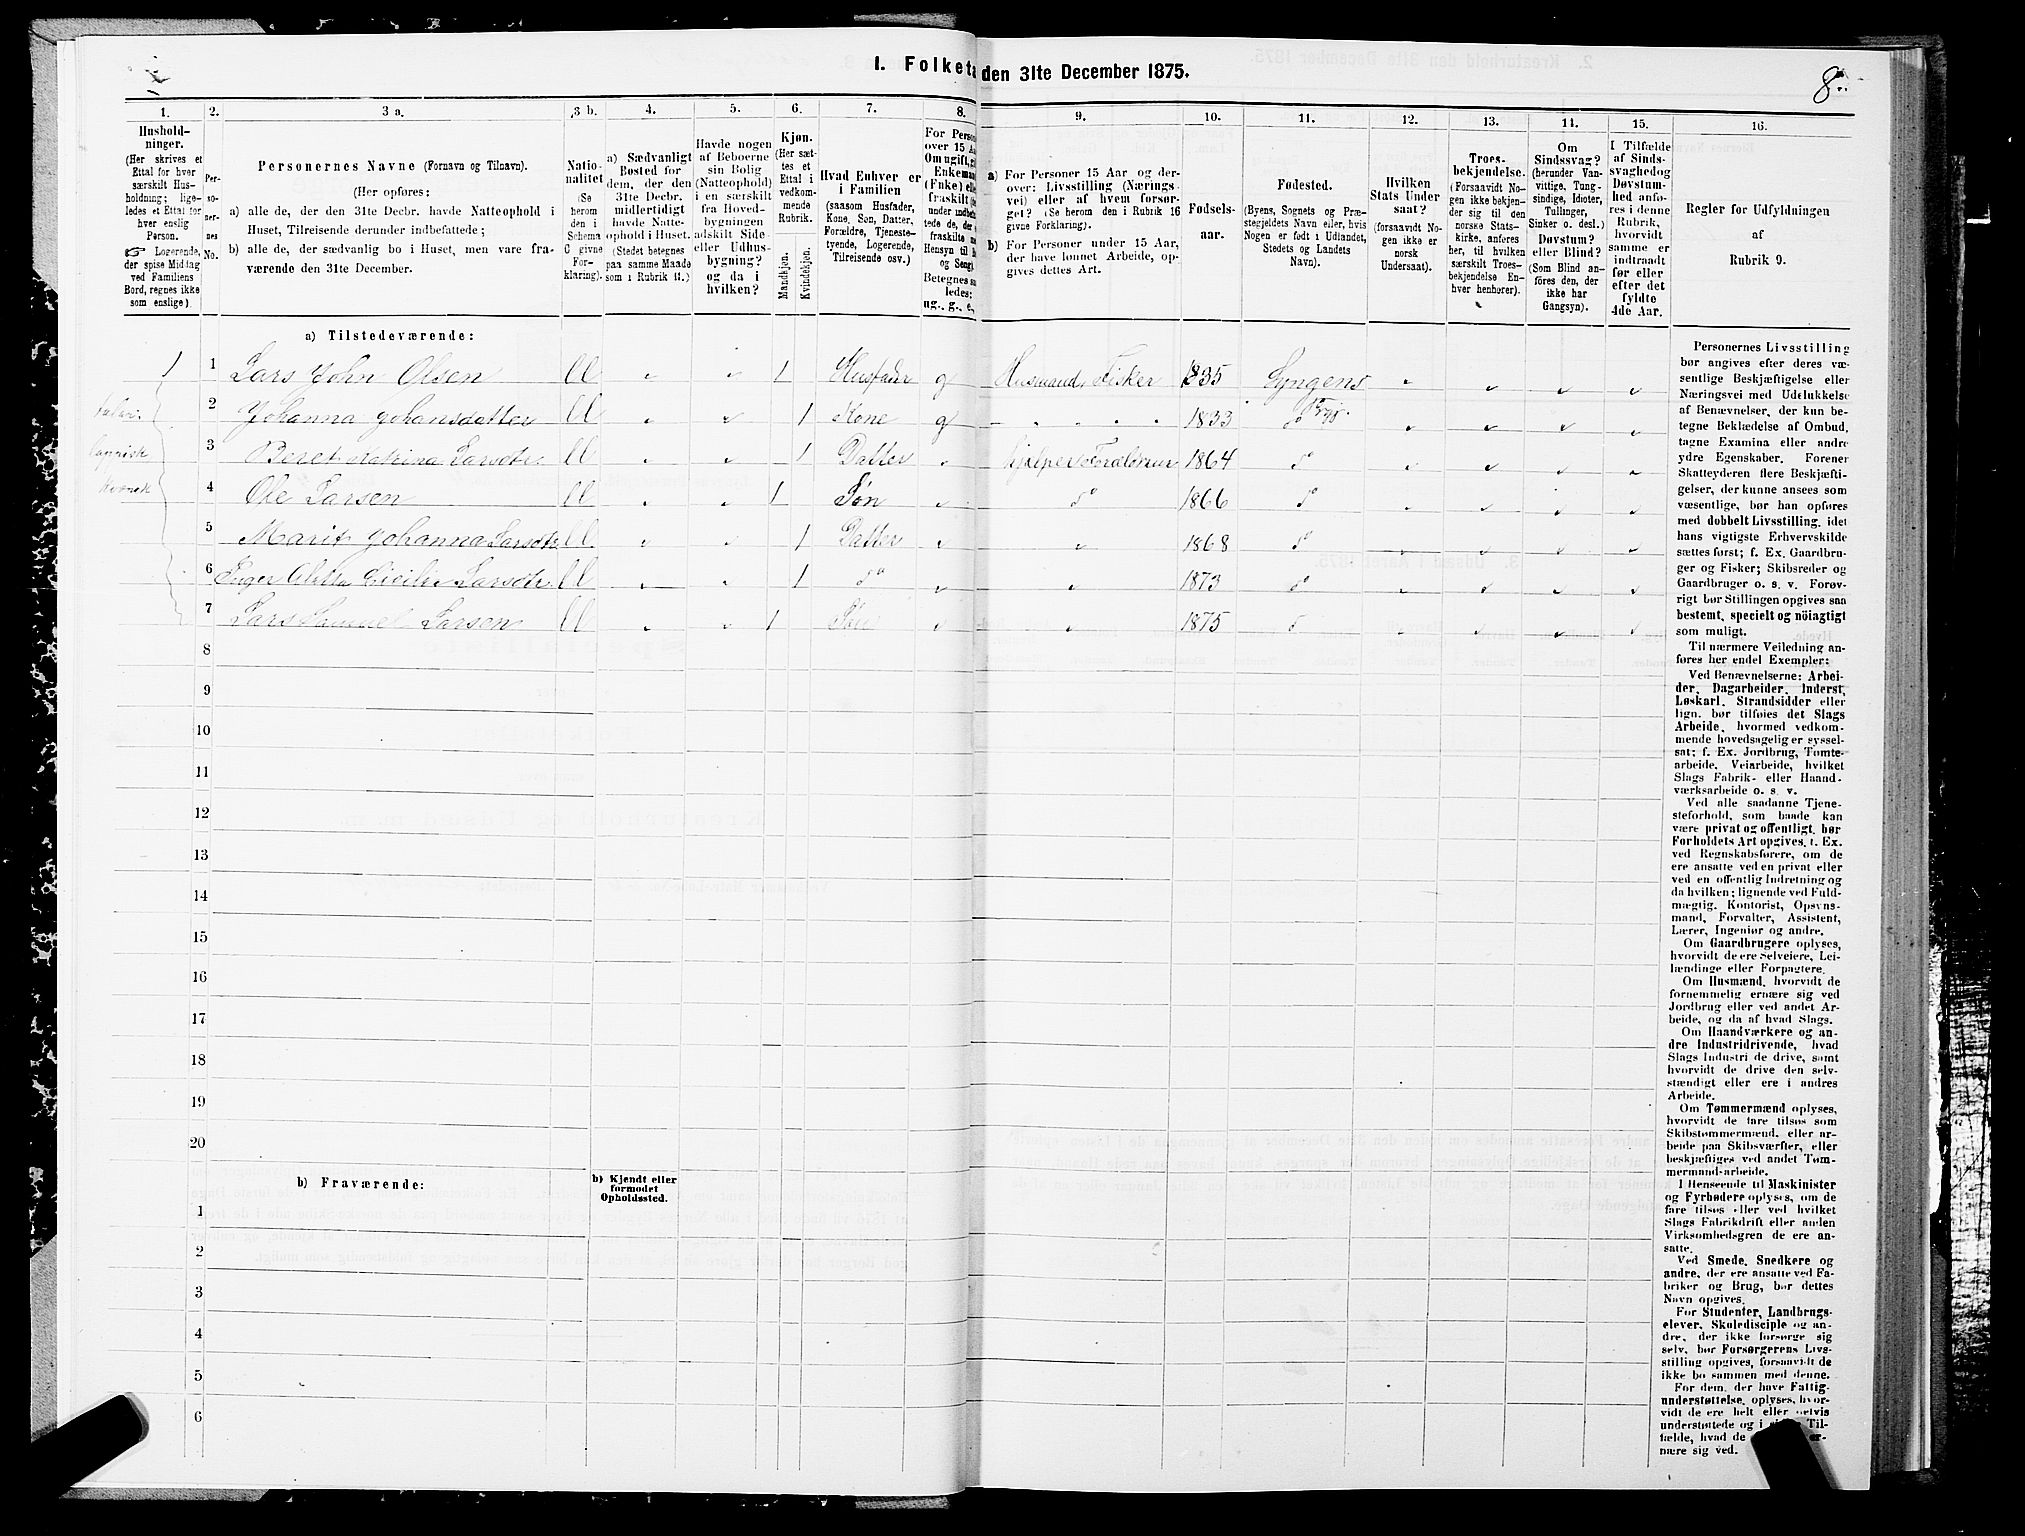 I. Folketa den 31te December 1875.
8
1. 2. 3 a. 3 b. 4. 5. 6. 7. 8. 9. 10. 11. 12. 13. 14. 15. 16.
Hushold-
ninger.
(Her skrives et
Ettal for hver
særskilt Hus-
holdning; lige-
ledes et Ettal for
hver enslig
Person.
☞ Logerende,
der spise Middag
ved Familiens
Bord, regnes ikke
som enslige).
Per-
so-
ner-
nes
No.
Personernes Navne (Fornavn og Tilnavn).
(Her opføres:
a) alle de, der den 31te Decbr. havde Natteophold i
Huset, Tilreisende derunder indbefattede;
b) alle de, der sædvanlig bo i Huset, men vare fra-
værende den 31te December.
Natio-
nalitet
(Se
herom
den i
Schema
C givne
For-
klaring).
a) Sædvanligt
Bosted for
dem, der den
31te Decbr.
midlertidigt
havde Natte-
ophold i Huset.
(Stedet betegnes
paa samme Maade
som i Rubrik 11.)
Havde nogen
af Beboerne
sin Bolig
(Natteophold)
i en særskilt
fra Hoved-
bygningen
adskilt Side-
eller Udhus-
bygning?
og da i
hvilken?
Kjøn.
(Her sæt-
tes et
Ettal i
vedkom-
mende
Rubrik.
Mandkjøn.
Kvindekjøn.
Hvad Enhver er
i Familien
(saasom Husfader,
Kone, Søn, Datter,
Forældre, Tjeneste-
tyende, Logerende,
Tilreisende osv.)
For Perso
over 15 Aa
Om ugift, g
Enkeman
(Enke) elle
fraskilt
Betegnes sa
ledes:
ug., g., e.,
a) For Personer 15 Aar og der-
over: Livsstilling (Nærings-
vei) eller af hvem forsør-
get? (Se herom den i Rubrik 16
givne Forklaring).
b) For Personer under 15 Aar,
der have lønnet Arbeide, op-
gives dettes Art.
Fødsels-
aar.
Fødested.
(Byens, Sognets og Præ-
stegjeldets Navn eller, hvis
Nogen er født i Udlandet,
Stedets og Landets
Navn).
Hvilken
Stats Under
saat?
(forsaavidt No-
gen ikke er
norsk
Undersaat).
Troes-
bekjendelse.
(Forsaavidt No-
gen ikke bekjen-
der sig til den
norske Stats-
kirke, anføres
her, til hvilken
særskilt Troes-
bekjendelse En-
hver henhører).
Om
Sindssvag?
(herunder Van-
vittige, Tung-
sindige, Idioter,
Tullinger,
Sinker o. desl.)
Døvstum?
eller Blind?
(Som Blind an-
føres den, der
ikke har
Gangsyn).
I Tilfælde
af Sinds-
svaghed og
Døvstum-
hed anfø-
res i denne
Rubrik,
hvorvidt
samme er
indtraadt
før eller
efter det
fyldte
4de Aar.
Regler for Udfyldningen
af
Rubrik 9.
a) Tilstedeværende:
1 1 Lars John Olsen ll 1 Husfader g Husmand, Fisker 1835 Lyngens
2 Johanna Johansdatter ll 1 Kone g 1833 do
lappisk 3 Beret Katrina Larsdtr. ll 1 Datter hjælper Forældrene 1864 do
kvænsk 4 Ole Larsen ll 1 Søn do 1866 do
5 Marit Johanna Larsdtr ll 1 Datter 1868 do
6 Inger Cicilie Larsdtr. ll 1 do 1873 do
7 Lars Samuel Larsen ll 1 Søn 1875 do
8
9
10
11
12
13
14
15
16
17
18
19
20
b) Fraværende:
b) Kjendt eller
formodet
Opholdssted.
1
2
3
4
5
6
Personernes Livsstilling
bør angives efter deres væ-
sentlige Beskjæftigelse eller
Næringsvei med Udelukkelse
af Benævnelser, der kun be-
tegne Beklædelse af Ombud,
tagne Examina eller andre
ydre Egenskaber. Forener
Skatteyderen flere Beskjæfti-
gelser, der kunne ansees som
væsentlige, bør han opføres
med dobbelt Livsstilling, idet
hans vigtigste Erhvervskilde
sættes først; f. Ex. Gaardbru-
ger og Fisker; Skibsreder og
Gaardbruger o. s. v. Forøv-
rigt bør Stillingen opgives saa
bestemt, specielt og nöiagtigt
som muligt.
Til nærmere Veiledning an-
føres her endel Exempler:
Ved Benævnelserne: Arbei-
der, Dagarbeider, Inderst,
Løskarl, Strandsidder eller
lign. bør tilføies det Slags
Arbeide, hvormed vedkom-
mende hovedsagelig er syssel-
sat; f. Ex. Jordbrug, Tømte-
arbeide, Veiarbeide, hvilket
Slags Fabrik- eller Haand-
værksarbeide o. s. v.
Ved alle saadanne Tjene-
steforhold, som baade kan
være privat og offentligt, bør
Forholdets Art opgives, f. Ex.
ved Regnskabsførere, om de
ere ansatte ved en privat eller
ved en offentlig Indretning og
da hvilken; lignende ved Fuld-
mægtig, Kontorist, Opsyns-
mand, Forvalter, Assistent,
Lærer, Ingeniør og andre.
Om Gaardbrugere oplyses,
hvorvidt de ere Selveiere, Lei-
lændinge eller Forpagtere.
Om Husmænd, hvorvidt de
fornemmelig ernære sig ved
Jordbrug eller ved andet Ar-
beide, og da af hvad Slags.
Om Haandværkere og an-
dre Industridrivende, hvad
Slags Industri de drive, samt
hvorvidt de drive den selv-
stændigt eller ere i andres
Arbeide.
Om Tømmermænd oplyses,
hvorvidt de fare tilsøs som
Skibstømmermænd, eller ar-
beide paa Skibsværfter, eller
beskjæftiges ved andet Tøm-
mermandarbeide.
I Henseende til Maskinister
og Fyrbødere oplyses, om de
fare tilsøs eller ved hvilket
Slags Fabrikdrift eller anden
Virksomhedsgren de ere an-
satte.
Ved Smede, Snedkere og
andre, der ere ansatte ved Fa-
briker og Brug, bør dettes
Navn opgives.
For Studenter, Landbrugs-
elever, Skoledisciple og an-
dre, der ikke forsørge sig
selv, bør Forsørgerens Livs-
stilling opgives, forsaavidt de
ikke bo sammen med denne.
For dem, der have Fattig-
understøttelse, oplyses, hvor-
vidt de ere helt eller delvis
understøttede og i Til-
fælde, hvad de
nære sig ved.